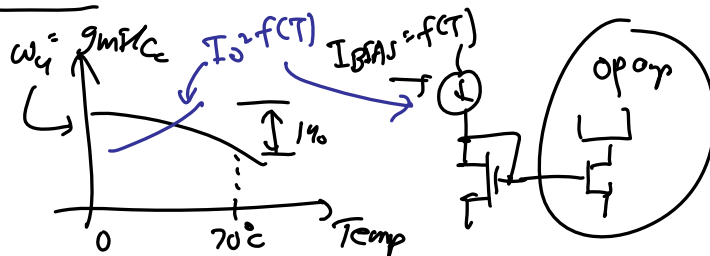 ωu = gmi/Cc
Io = f(T)
IBIAS = f(T)
op amp
1%
0
70°C
Temp